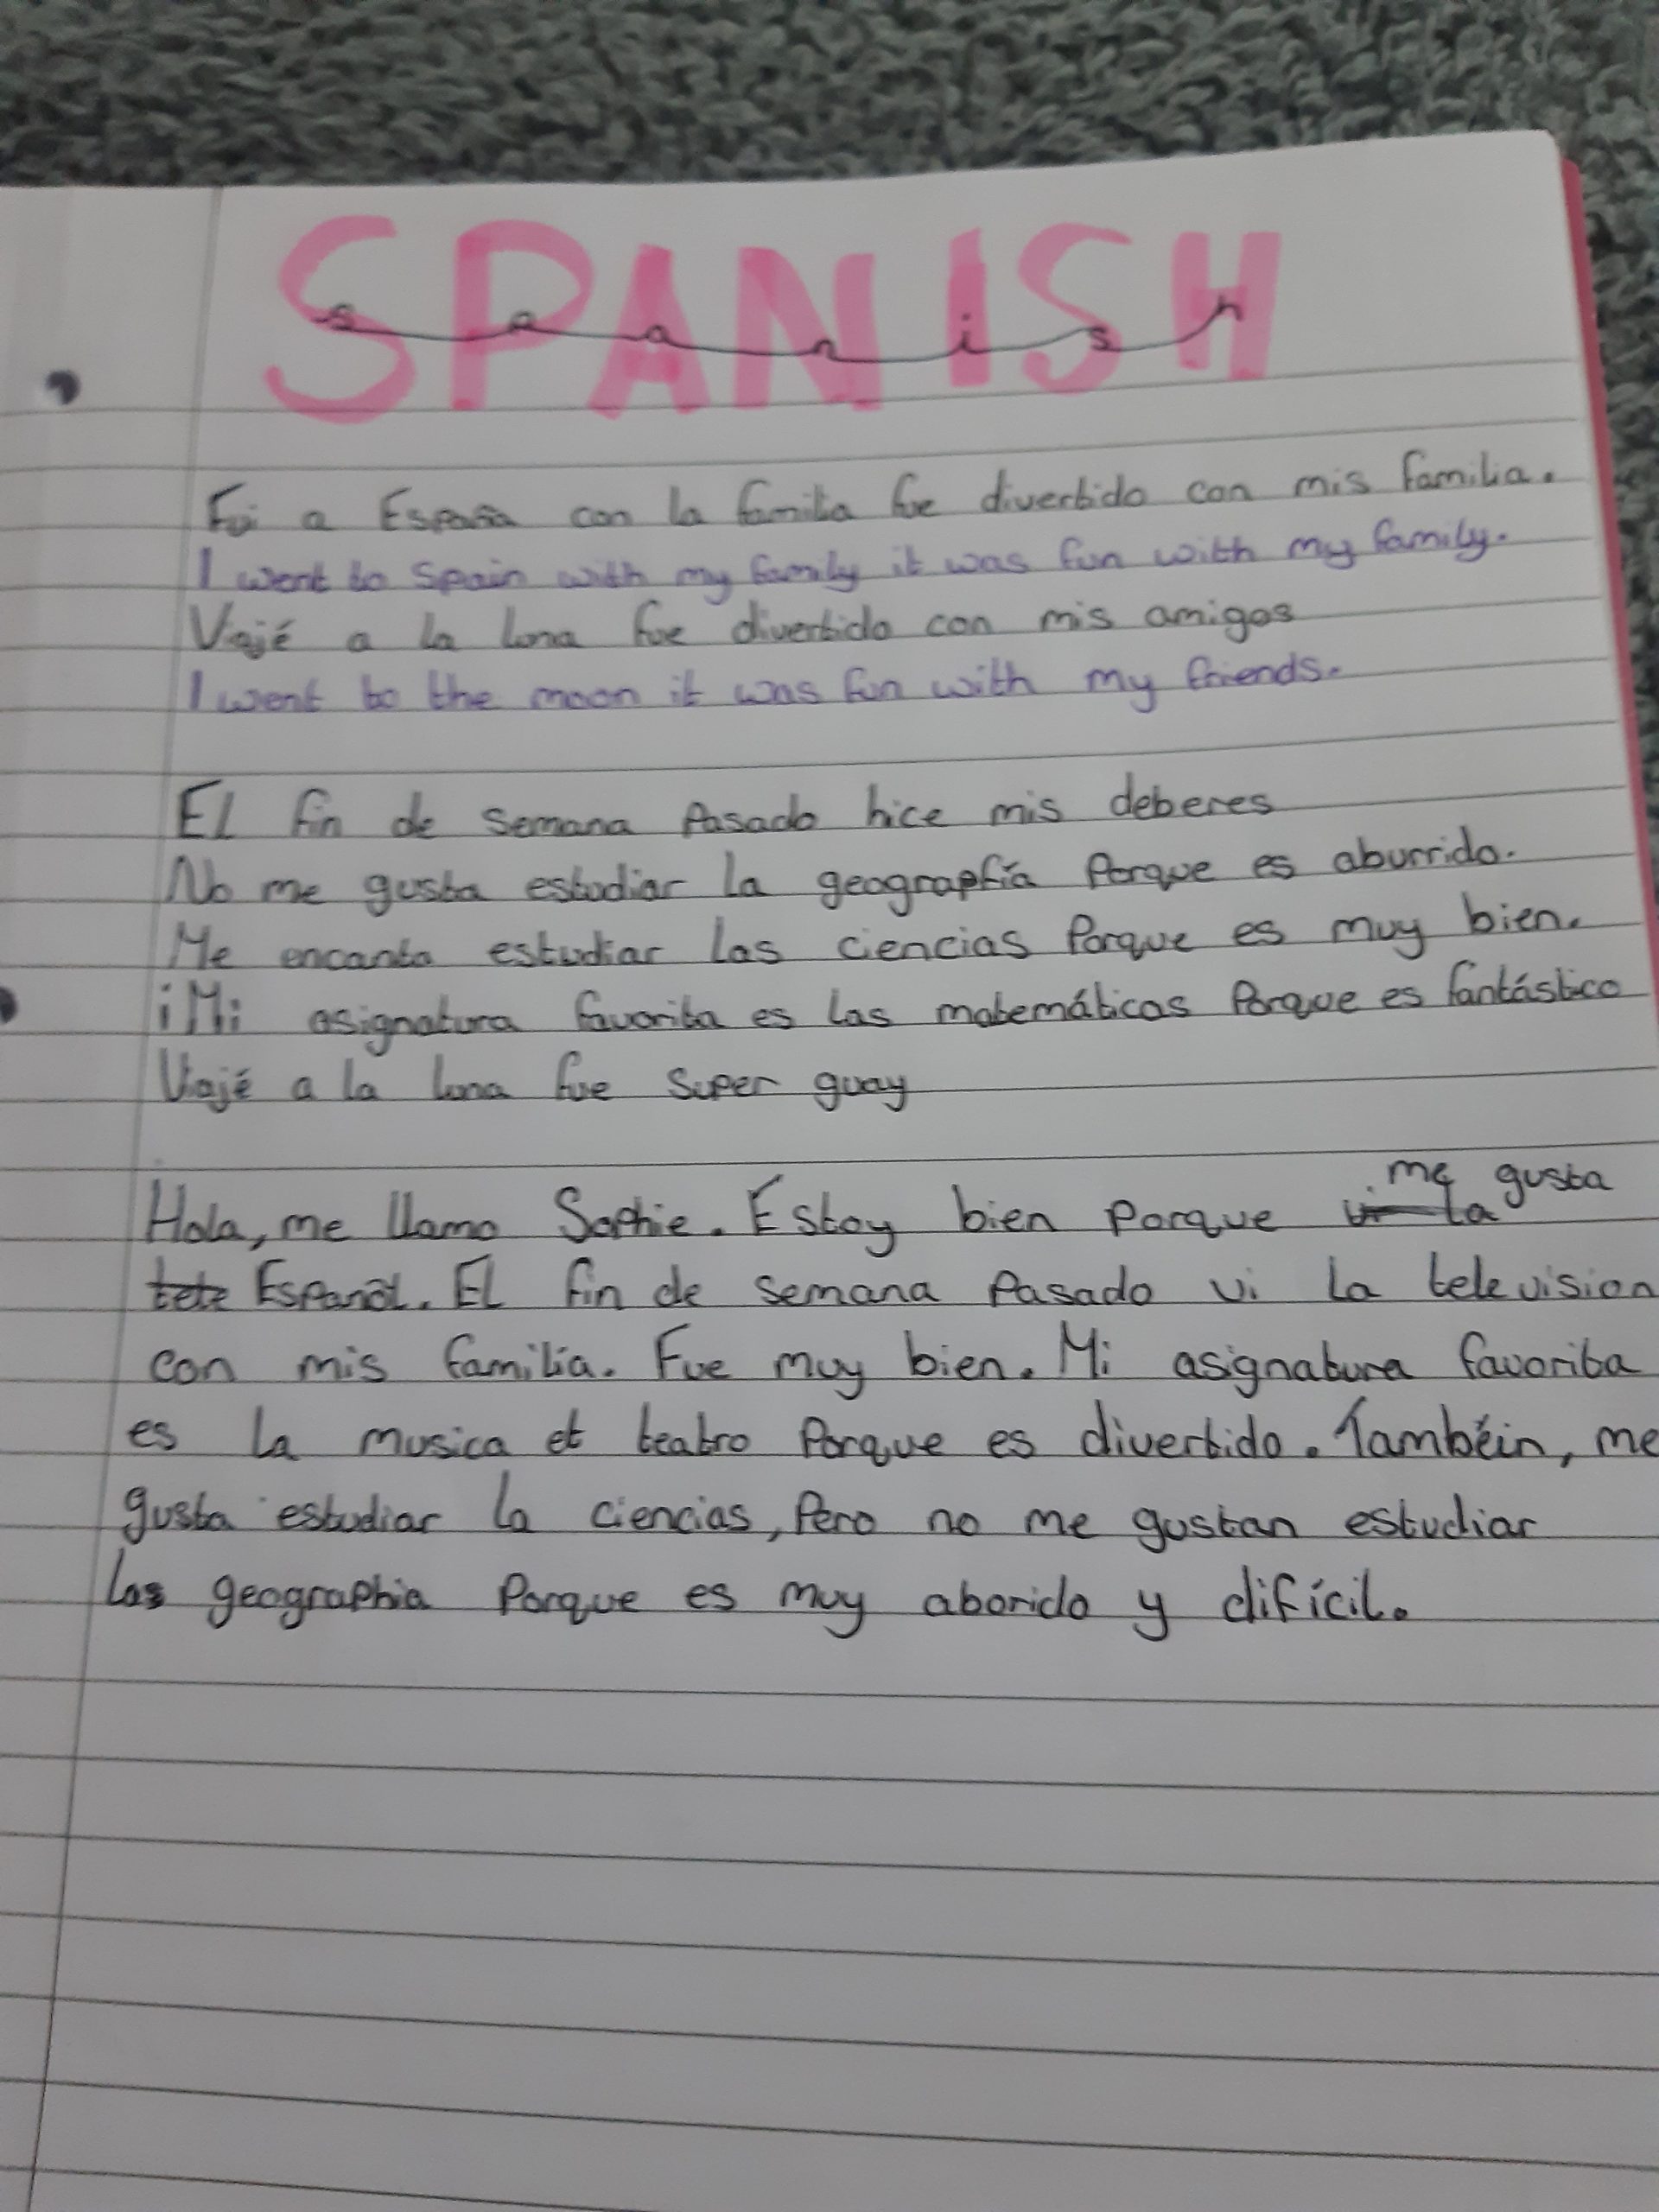 SPANISH
spanish
Fui a España con la familia fue divertido con mis familia.
I went to Spain with my family it was fun with my family.
Viajé a la luna fue divertido con mis amigos
I went to the moon it was fun with my friends.
El fin de semana pasado hice mis deberes
No me gusta estudiar la geograpfía porque es aburrido.
Me encanta estudiar las ciencias porque es muy bien.
¡Mi asignatura favorita es las matemáticas porque es fantástico
Viajé a la luna fue super guay
me gusta
Hola, me llamo Sophie. Estoy bien porque vi la
tete Español. El fin de semana pasado vi la television
con mis familia. Fue muy bien. Mi asignatura favorita
es la musica et teatro porque es divertido. Tambéin, me
gusta estudiar la ciencias, pero no me gustan estudiar
las geographia porque es muy aborido y difícil.